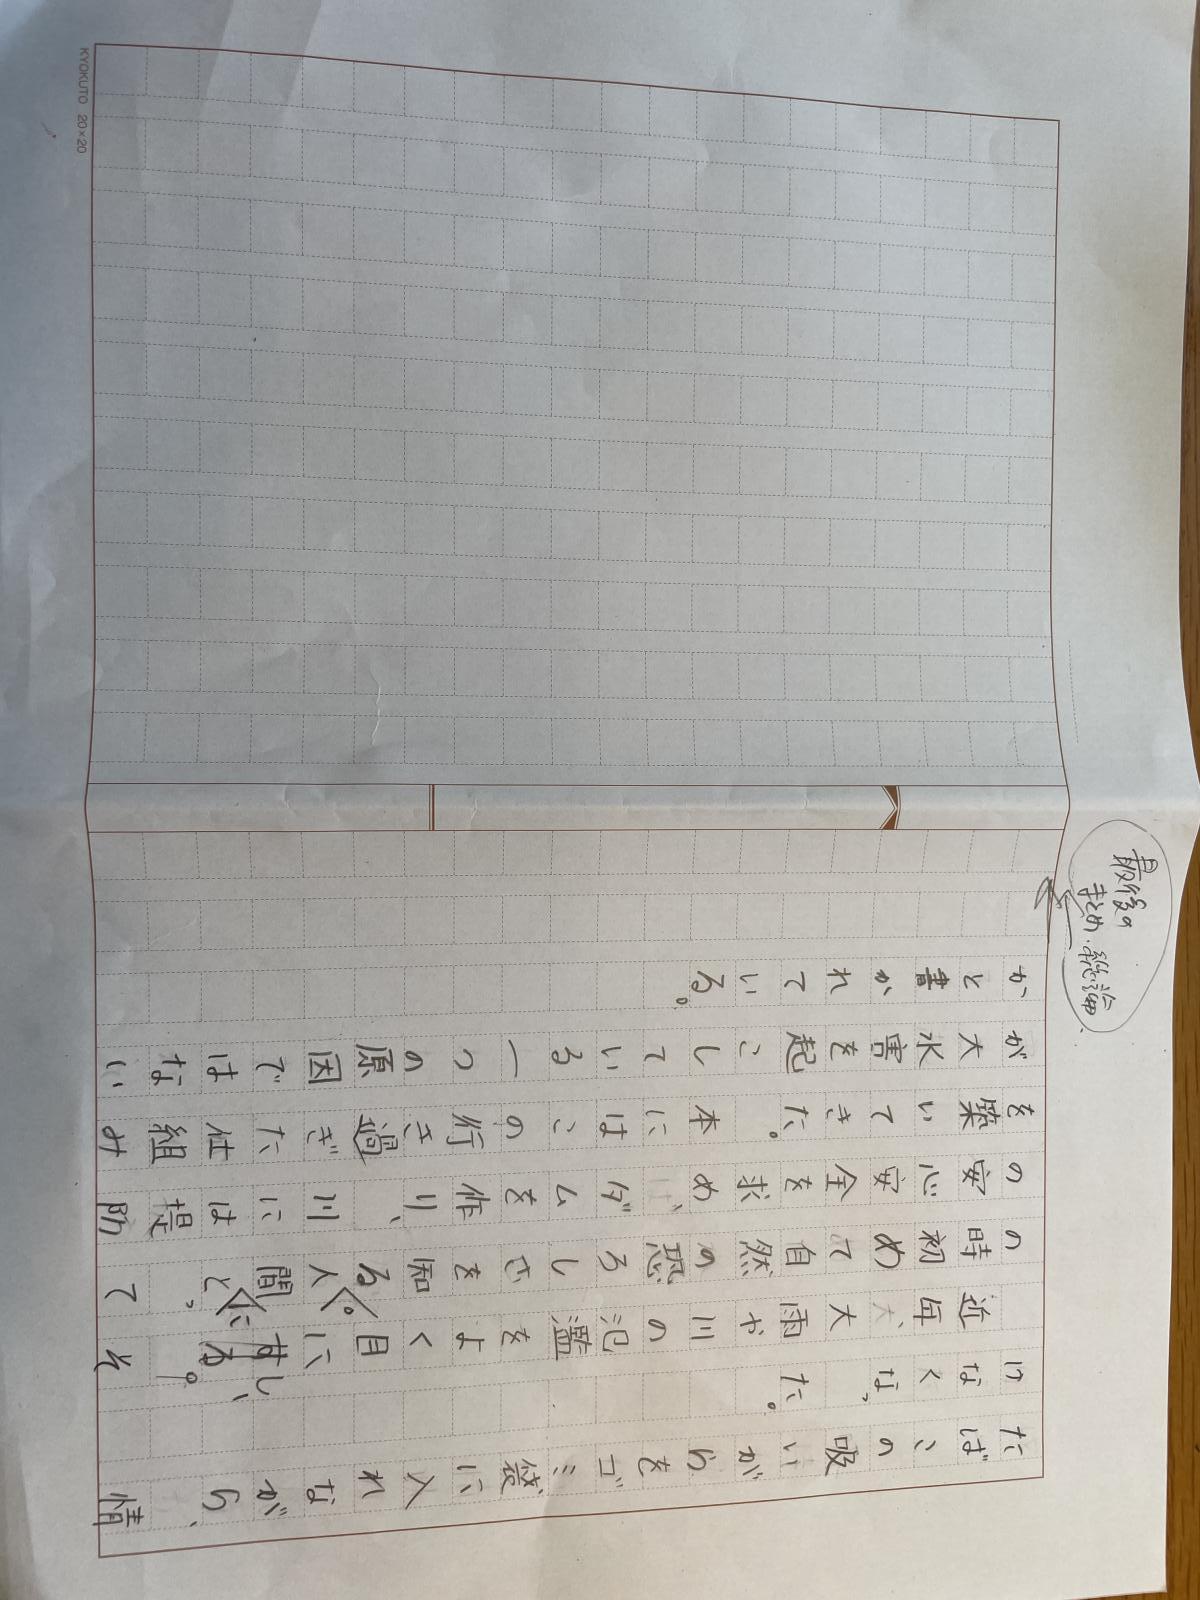 最後の
まとめ・総論
たばこの吸いがらをゴミ袋に入れながら、情
けなくなった。
近年、大雨や川の氾濫をよく目にし、そ
の時初めて自然の恐ろしさを知る。人間にとって
の安心安全を求め、ダムを作り、川には堤防
を築いてきた。本にはこの行き過ぎた仕組み
が大水害を起こしている一つの原因ではない
かと書かれている。
KYOKUTO 20×20